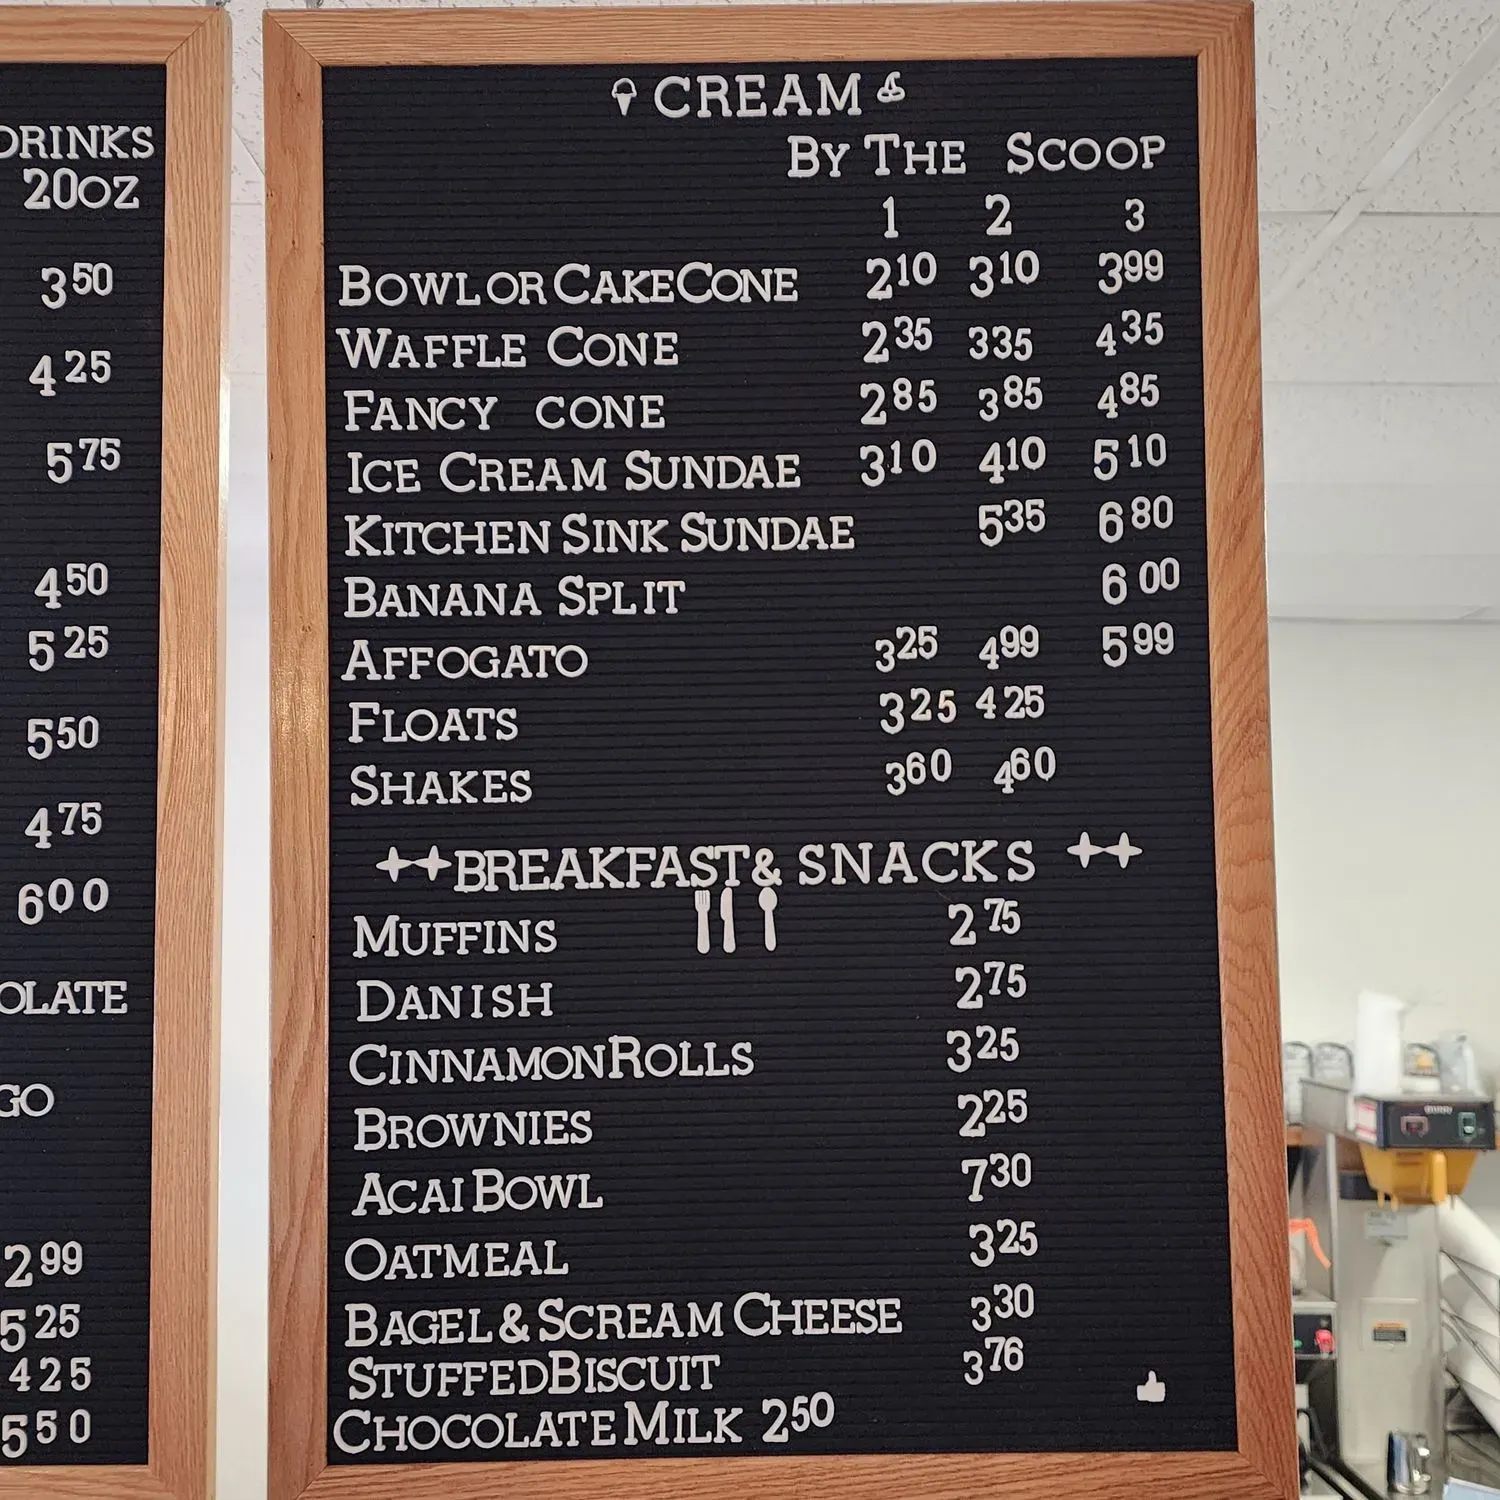 DRINKS
20OZ
3 50
4 25
5 75
4 50
5 25
5 50
4 75
6 00
2 99
5 25
4 25
5 50
CREAM
BY THE SCOOP
1 2 3
BOWL OR CAKE CONE 2 10 3 10 3 99
WAFFLE CONE 2 35 3 35 4 35
FANCY CONE 2 85 3 85 4 85
ICE CREAM SUNDAE 3 10 4 10 5 10
KITCHEN SINK SUNDAE 5 35 6 80
BANANA SPLIT 6 00
AFFOGATO 3 25 4 99 5 99
FLOATS 3 25 4 25
SHAKES 3 60 4 60
BREAKFAST & SNACKS
MUFFINS 2 75
DANISH 2 75
CINNAMON ROLLS 3 25
BROWNIES 2 25
ACAI BOWL 7 30
OATMEAL 3 25
BAGEL & SCREAM CHEESE 3 30
STUFFED BISCUIT 3 76
CHOCOLATE MILK 2 50